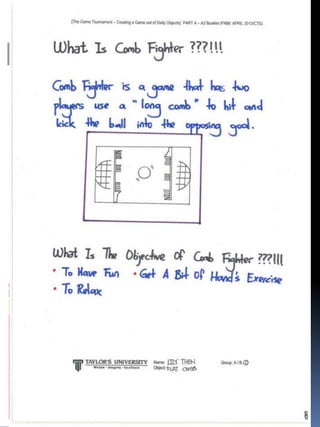 [The Game Tournament – Creating a Game out of Daily Objects] PART A – A3 Booklet (FNBE APRIL 2013/CTS)
What Is Comb Fighter ???!!!
Comb Fighter is a game that has two
players use a "long comb" to hit and
kick the ball into the opposing goal.
What Is The Objective Of Comb Fighter ???!!!
• To Have Fun • Get A Bit Of Hand's Exercise
• To Relax
TAYLOR'S UNIVERSITY
Wisdom • Integrity • Excellence
Name: THEN
Object: FLAT COMB
Group: A / B